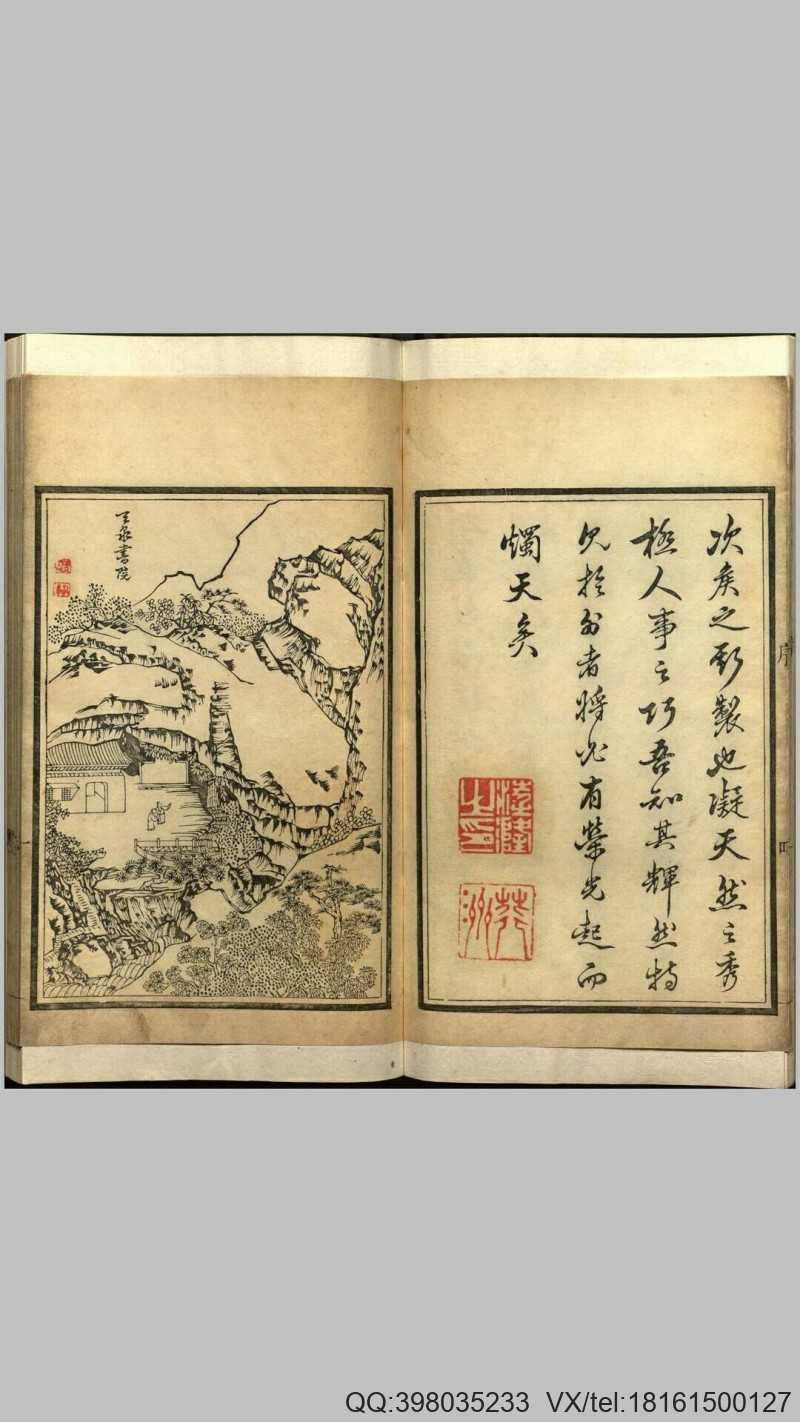 次矣之所製也凝天然之秀
極人事之巧吾知其輝然特
見於外者將必有榮光起而
燭天矣
序
天泉書院
QQ:398035233 VX/tel:18161500127